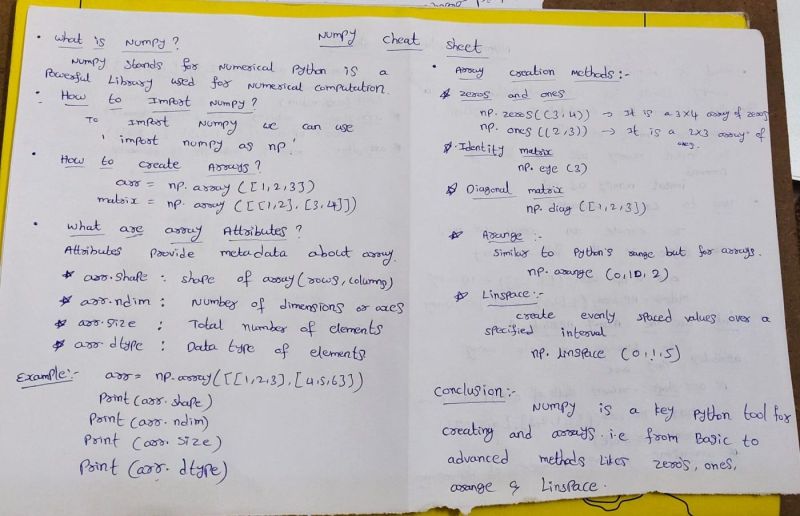 NumPy cheat sheet
• What is NumPy?
NumPy stands for Numerical Python is a
Powerful Library used for Numerical computation.
• How to Import NumPy?
To Import NumPy we can use
'import numpy as np'
• How to create Arrays?
arr = np.array([1,2,3])
matrix = np.array([[1,2],[3,4]])
• What are array Attributes?
Attributes Provide metadata about array.
* arr.shape : shape of array(rows, columns)
* arr.ndim : Number of dimensions or axes
* arr.size : Total number of elements
* arr.dtype : Data type of elements
Example:- arr = np.array([[1,2,3],[4,5,6]])
Print(arr.shape)
Print(arr.ndim)
Print(arr.size)
Print(arr.dtype)
• Array creation methods:-
* zeros and ones
np.zeros((3,4)) → It is a 3x4 array of zeros
np.ones((2,3)) → It is a 2x3 array of
ones.
* Identity matrix
np.eye(3)
* Diagonal matrix
np.diag([1,2,3])
* Arange :-
similar to Python's range but for arrays.
np.arange(0,10,2)
* Linspace:-
create evenly spaced values over a
specified interval
np.linspace(0,1,5)
Conclusion:-
NumPy is a key Python tool for
creating and arrays. i.e from Basic to
advanced methods likes zero's, ones,
arange & Linspace.